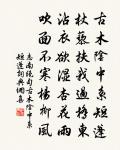 古木陰中系短篷
杖藜扶我過橋東
沾衣欲濕杏花雨
吹面不寒楊柳風
志南絕句古木陰中系
短篷詞典網集